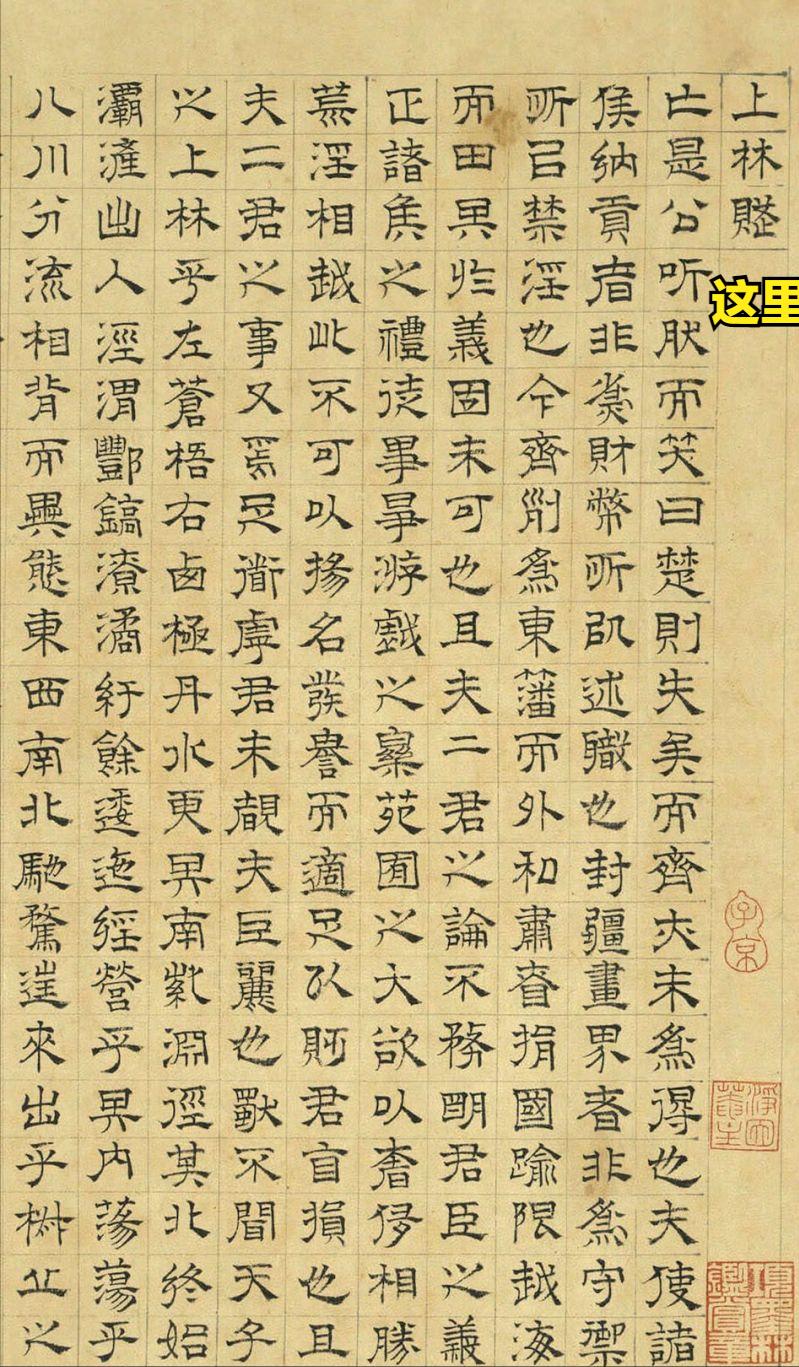 上林賦
亡是公听肰而笑曰楚則失矣而齊亦未為得也夫使諸
侯納貢者非為財幣所以述職也封疆畫界者非為守禦
所以禁淫也今齊列為東藩而外私肅眘捐國踰限越海
而田其於義固未可也且夫二君之論不務明君臣之義
正諸矦之禮徒事爭游戲之樂苑囿之大欲以奢侈相勝
荒淫相越此不可以揚名發譽而適足以貶君自損也且
夫二君之事又焉足道虖君未覩夫巨麗也獨不聞天子
之上林乎左蒼梧右西極丹水更其南紫淵徑其北終始
灞滻出入涇渭酆鎬潦潏紆餘逶迤經營乎其內蕩蕩乎
八川分流相背而異態東西南北馳騖往來出乎椒丘之
这里
子京
項墨林鑑賞章